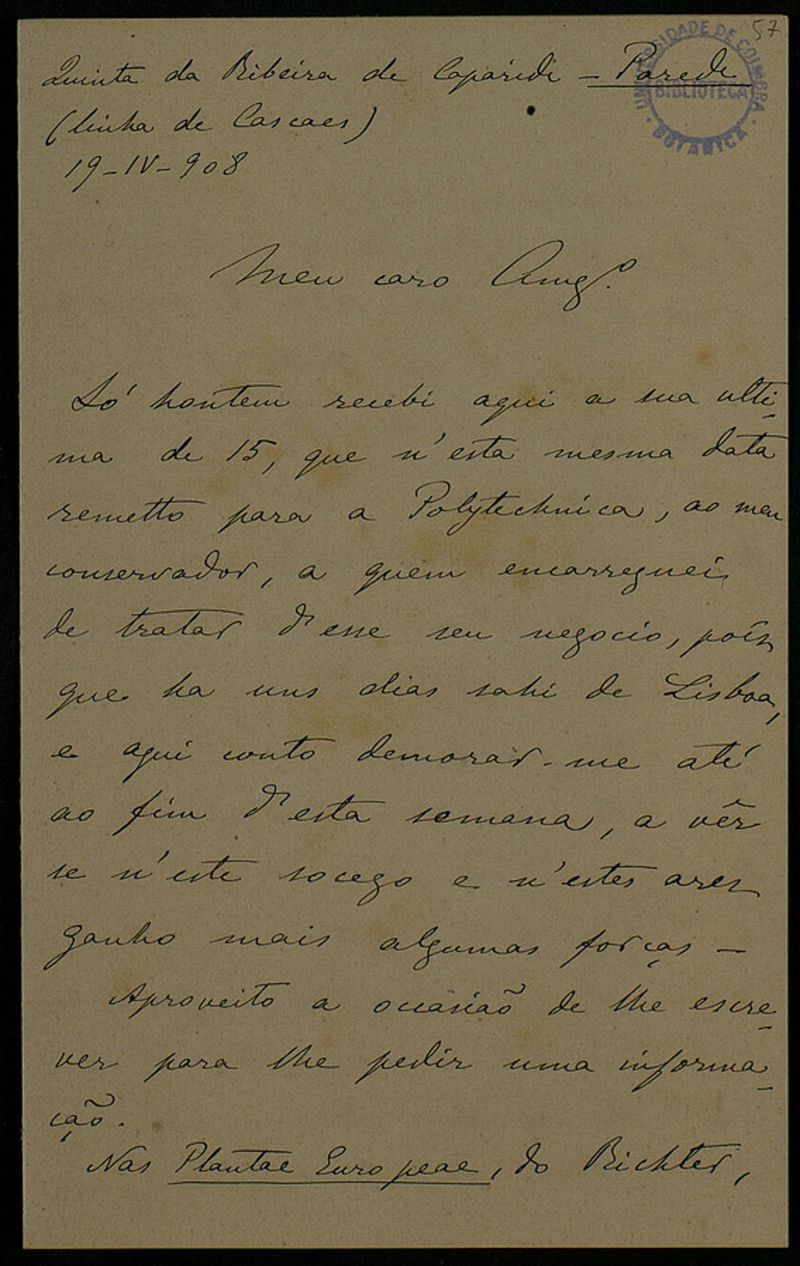 57
UNIVERSIDADE DE COIMBRA
BIBLIOTECA
BOTANICA
Quinta da Ribeira de Caparide – Parede
(linha de Cascaes)
19-IV-908
Meu caro Amgº.
Só hontem recebi aqui a sua ulti-
ma de 15, que n'esta mesma data
remetto para a Polytechnica, ao meu
conservador, a quem encarreguei
de tratar d'esse seu negocio, pois
que ha uns dias sahi de Lisboa,
e aqui conto demorar-me até
ao fim d'esta semana, a vêr
se n'este socego e n'estes ares
ganho mais algumas forças –
Aproveito a occasião de lhe escre-
ver para lhe pedir uma informa-
ção.
Nas Plantae Europeae, do Richter,